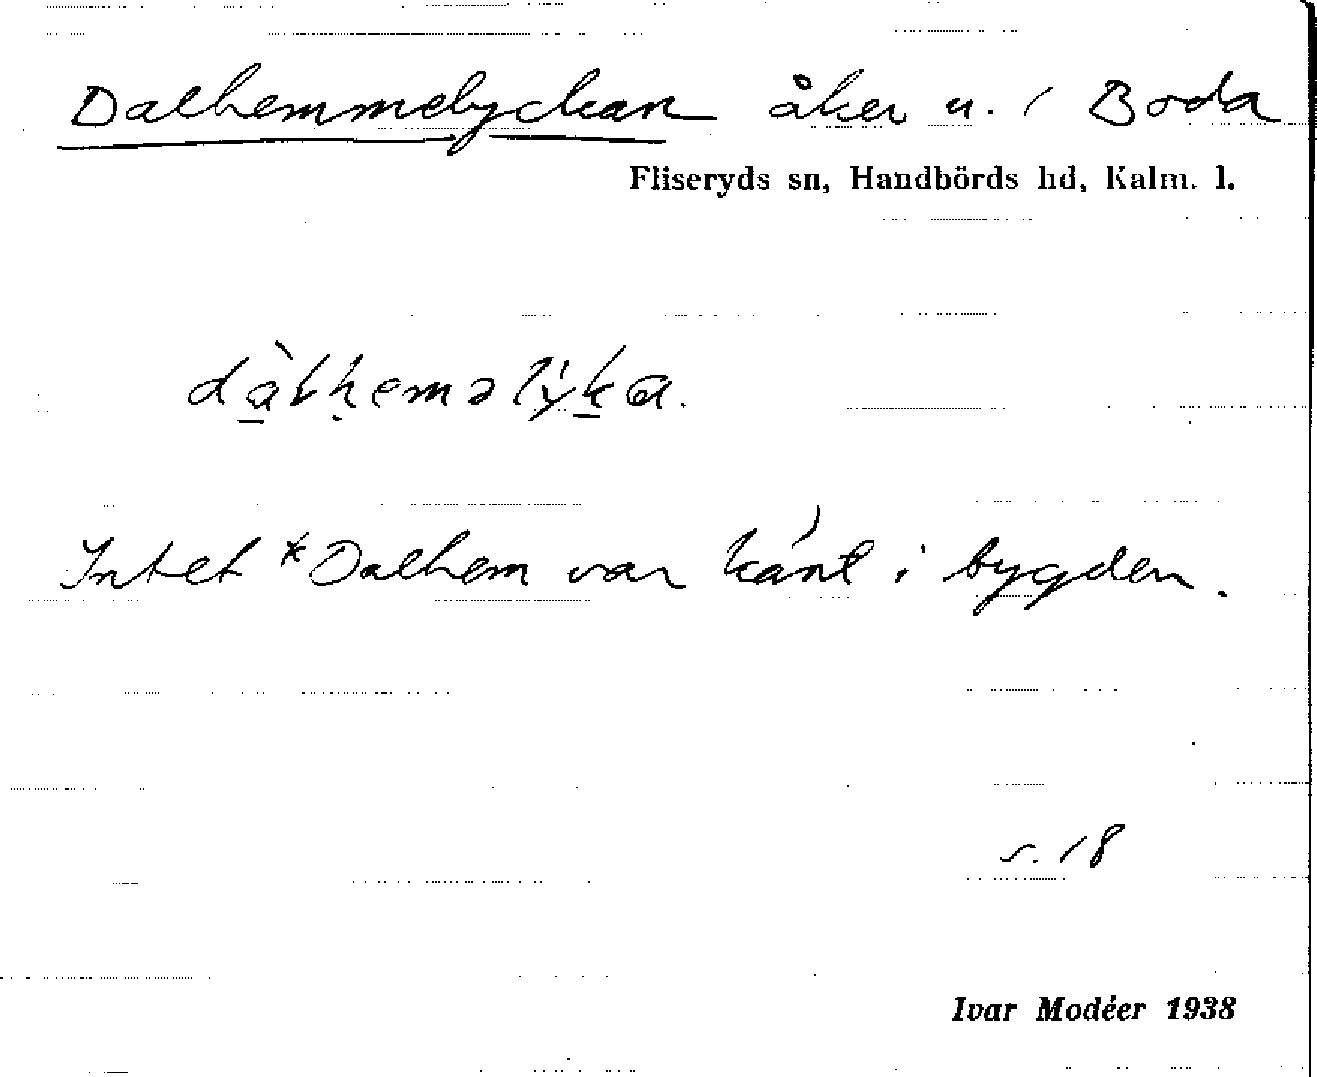 Dalhemmelyckan åker u. 1 Boda
Fliseryds sn, Handbörds hd, Kalm. l.
dàlheməlýka.
Intet *Dalhem var känt i bygden.
s. 18
Ivar Modéer 1938